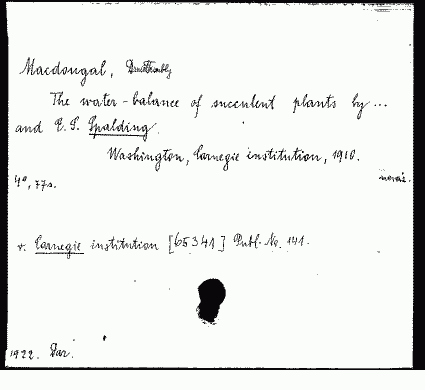 Macdougal, Daniel Trembly
The water-balance of succulent plants by ...
and E. S. Spalding.
Washington, Carnegie institution, 1910.
4°, 77s.
v. Carnegie institution [65341] Publ. No. 141.
1922. Dar.